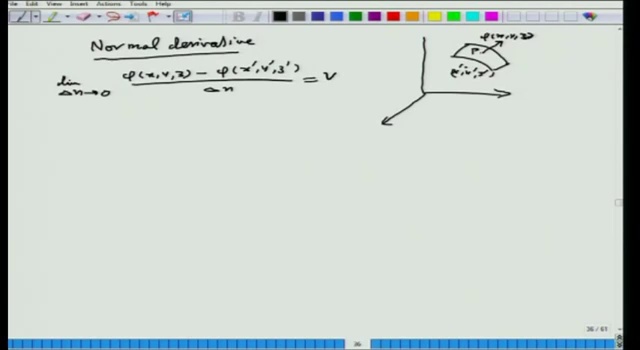 File Edit View Insert Actions Tools Help
Normal derivative
lim Δn→0 φ(x,y,z) - φ(x',y',z') / Δn = V
φ(x,y,z)
P
(x',y',z')
36 / 61
36